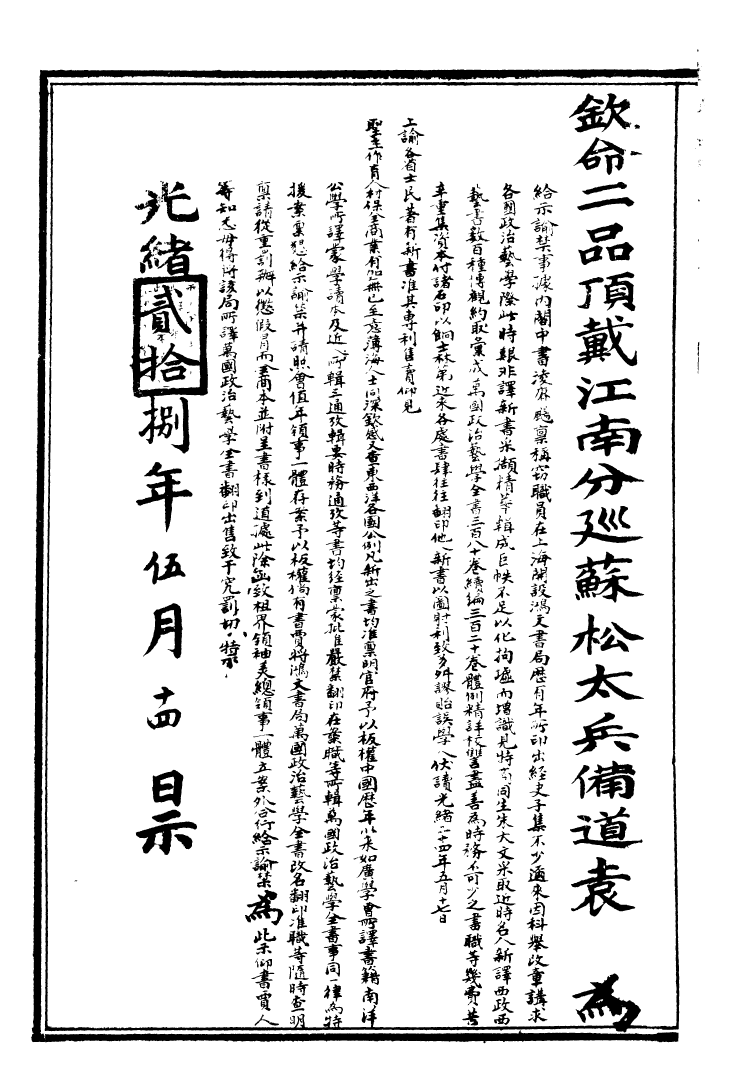 欽命二品頂戴江南分廵蘇松太兵備道袁　為
給示諭禁事據內閣中書淩　颺稟稱竊職員在上海開設鴻文書局歷有年所印出經史子集不少邇來因科舉改章講求
各國政治藝學際此時艱非譯新書采擷精華輯成巨帙不足以化拘墟而增識見特　同生朱大文采取近時名人新譯西政西
藝書數百種博觀約取彙成萬國政治藝學全書三百八十卷續編三百二十卷體例精詳校讐盡善為時務不可少之書職等幾費苦
辛重集資本付諸石印以餉士林第近來各處書肆往往翻印他人新書以圖射利致多舛謬貽誤學人伏讀光緒二十四年五月十七日
上諭各省士民著有新書准其專利售賣仰見
聖主作育人材保全商業有加無已至意薄海人士同深欽感又查東西洋各國公例凡新出之書均准稟明官府予以板權中國歷年以來如廣學會所譯書籍南洋
公學所譯蒙學讀本及近人所輯三通攷輯要時務通攷等書均經稟蒙批准嚴禁翻印在案職等所輯萬國政治藝學全書事同一律為特
援案稟懇給示諭禁并請照會值年領事一體存案予以板權倘有書賈將鴻文書局萬國政治藝學全書改名翻印准職等隨時查明
稟請從重罰辦以懲假冒而全商本並附呈書樣到道據此除函致租界領袖美總領事一體立案外合行給示諭禁為此示仰書賈人
等知悉毋得將該局所譯萬國政治藝學全書翻印出售致干究罰切切特示
光緒貳拾捌年伍月十四日示